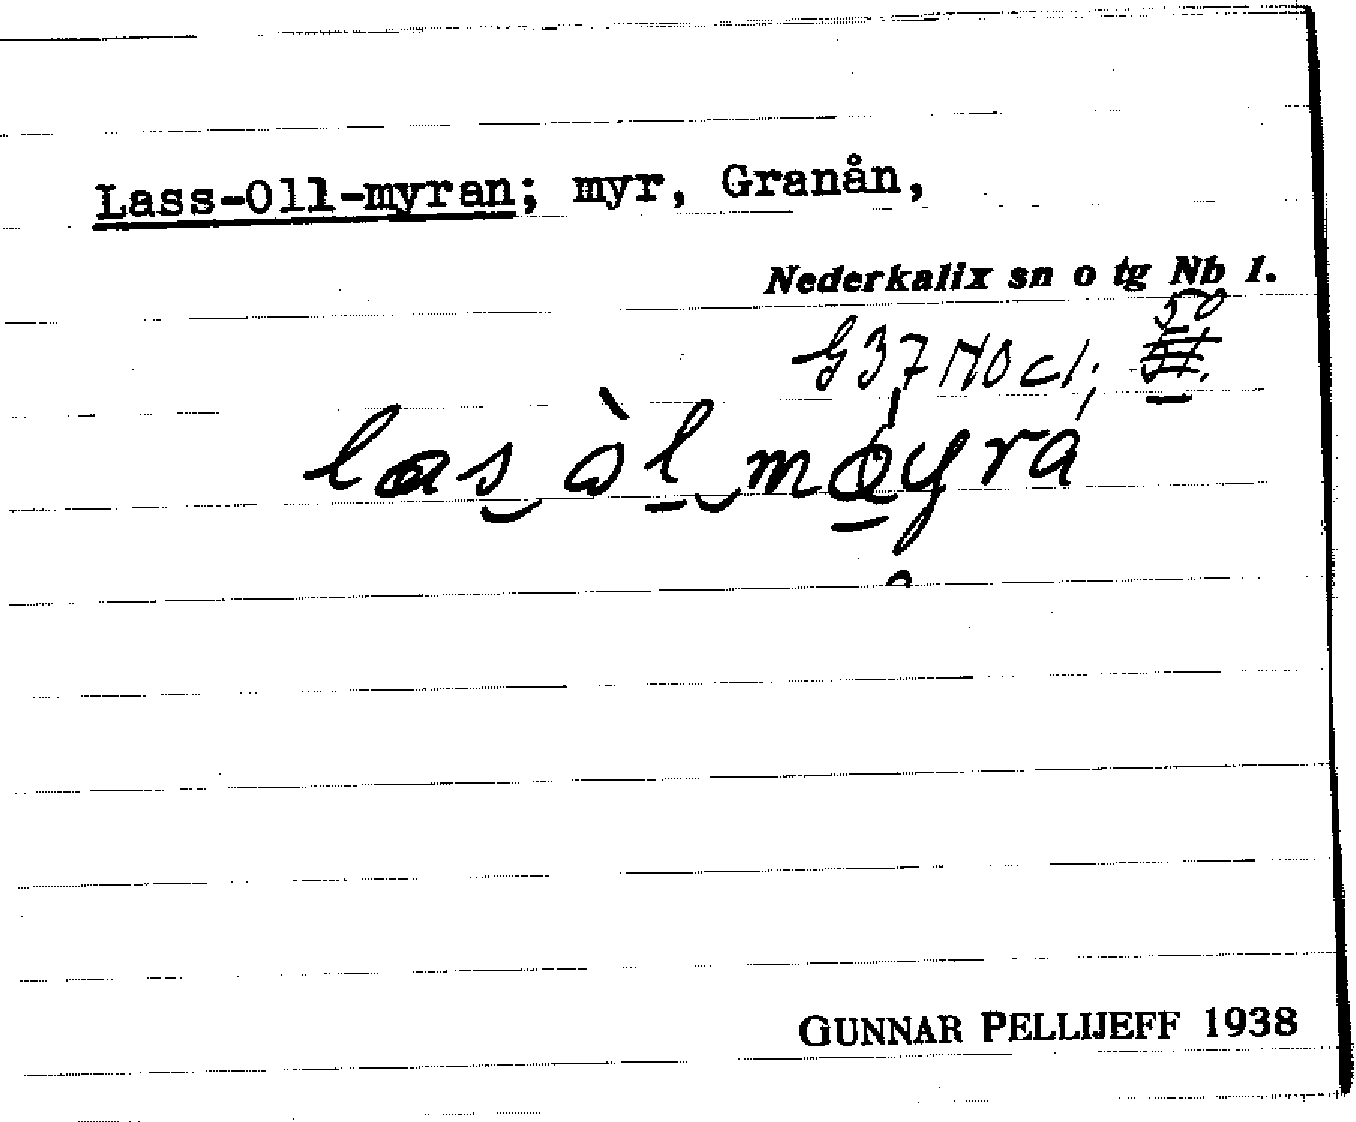 Lass-Oll-myran; myr, Granån,
Nederkalix sn o tg Nb 1.
50
G37 NO c1;
las òl møyra
GUNNAR PELLIJEFF 1938